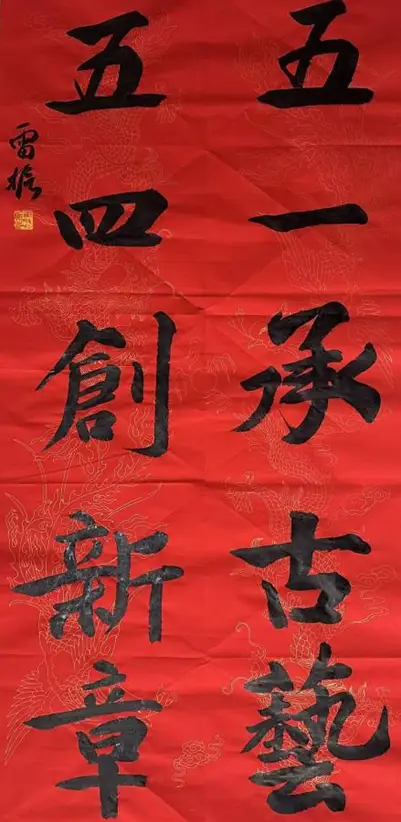 五一承古藝
五四創新章
雷振